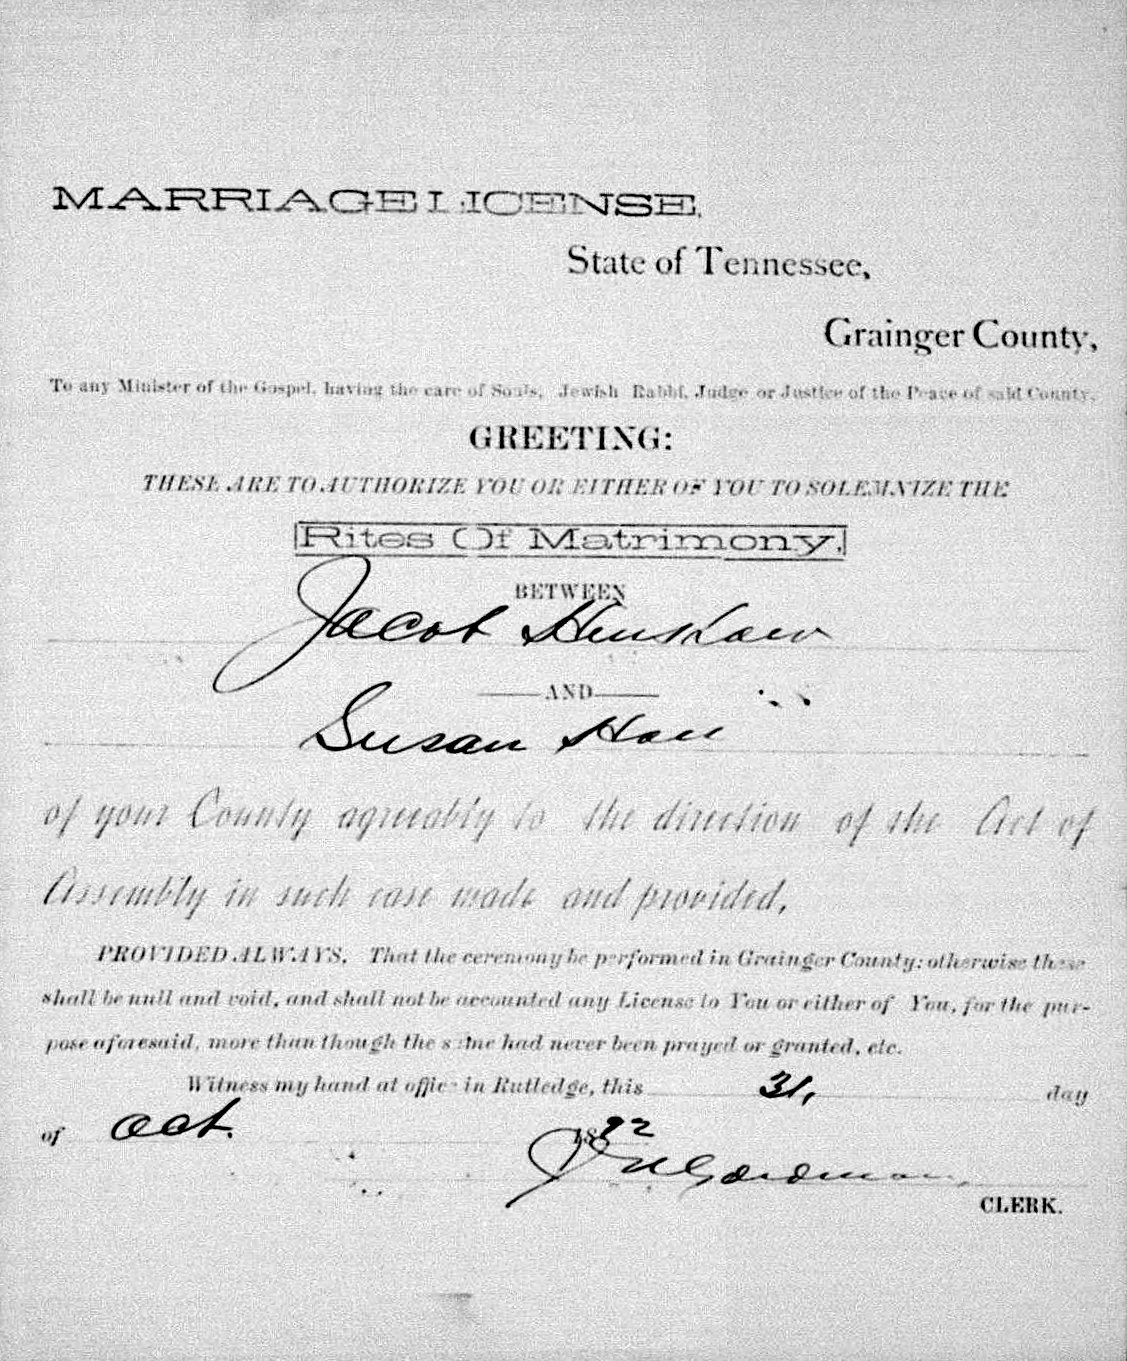 MARRIAGE LICENSE.
State of Tennessee,
Grainger County,
To any Minister of the Gospel, having the care of Souls, Jewish Rabbi, Judge or Justice of the Peace of said County.
GREETING:
THESE ARE TO AUTHORIZE YOU OR EITHER OF YOU TO SOLEMNIZE THE
Rites Of Matrimony,
BETWEEN
Jacob Henshaw
AND
Susan
of your County agreeably to the direction of the Act of
Assembly in such case made and provided,
PROVIDED ALWAYS, That the ceremony be performed in Grainger County: otherwise these
shall be null and void, and shall not be accounted any License to You or either of You, for the pur-
pose aforesaid, more than though the same had never been prayed or granted, etc.
Witness my hand at office in Rutledge, this 31, day
of Oct. 1892
CLERK.